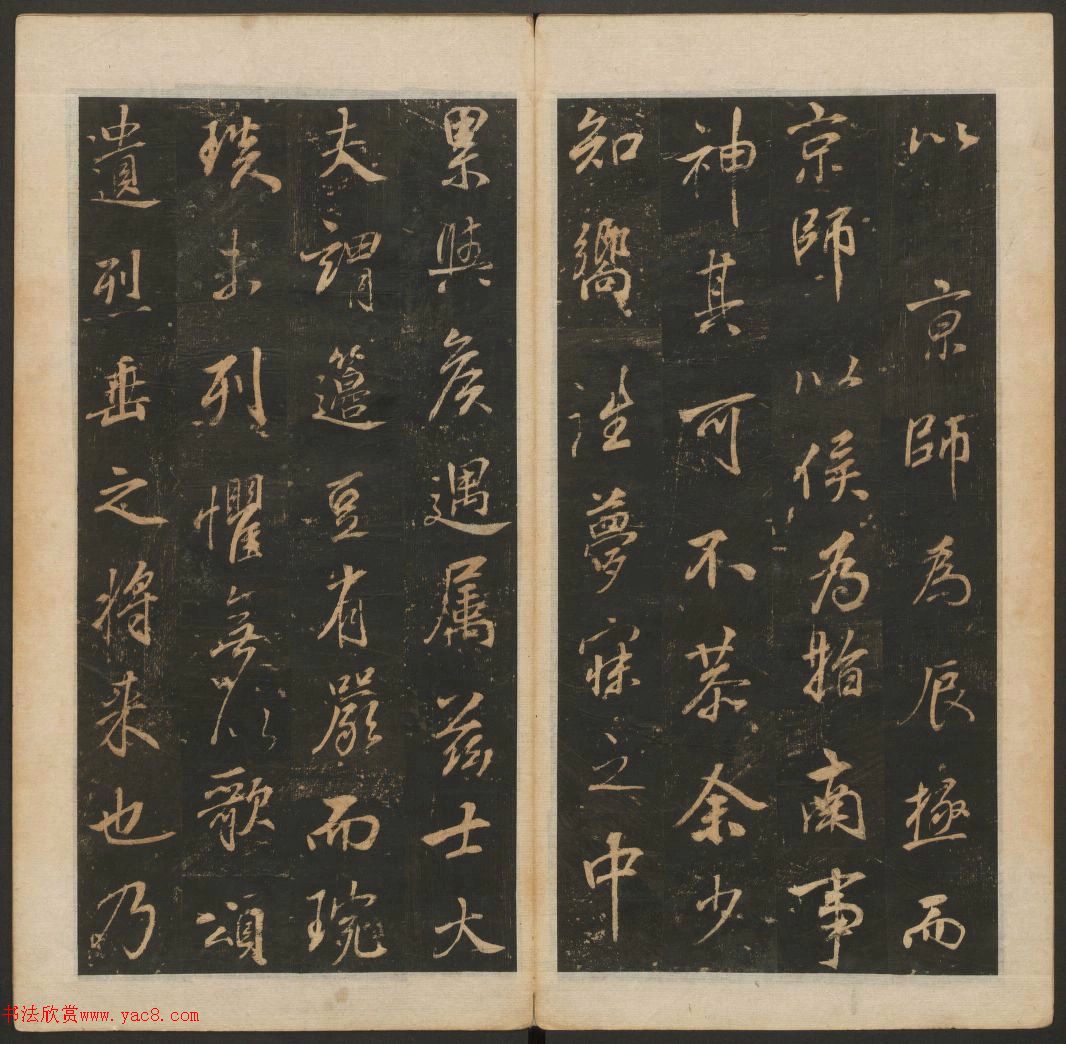 以京師為辰極而
京師以侯為指南事
神其可不恭余少
知嚮往夢寐之中
累與侯遇属茲士大
夫謂籩豆有嚴而琬
琰未列懼無以歌頌
遺烈垂之將来也乃
书法欣赏www.yac8.com